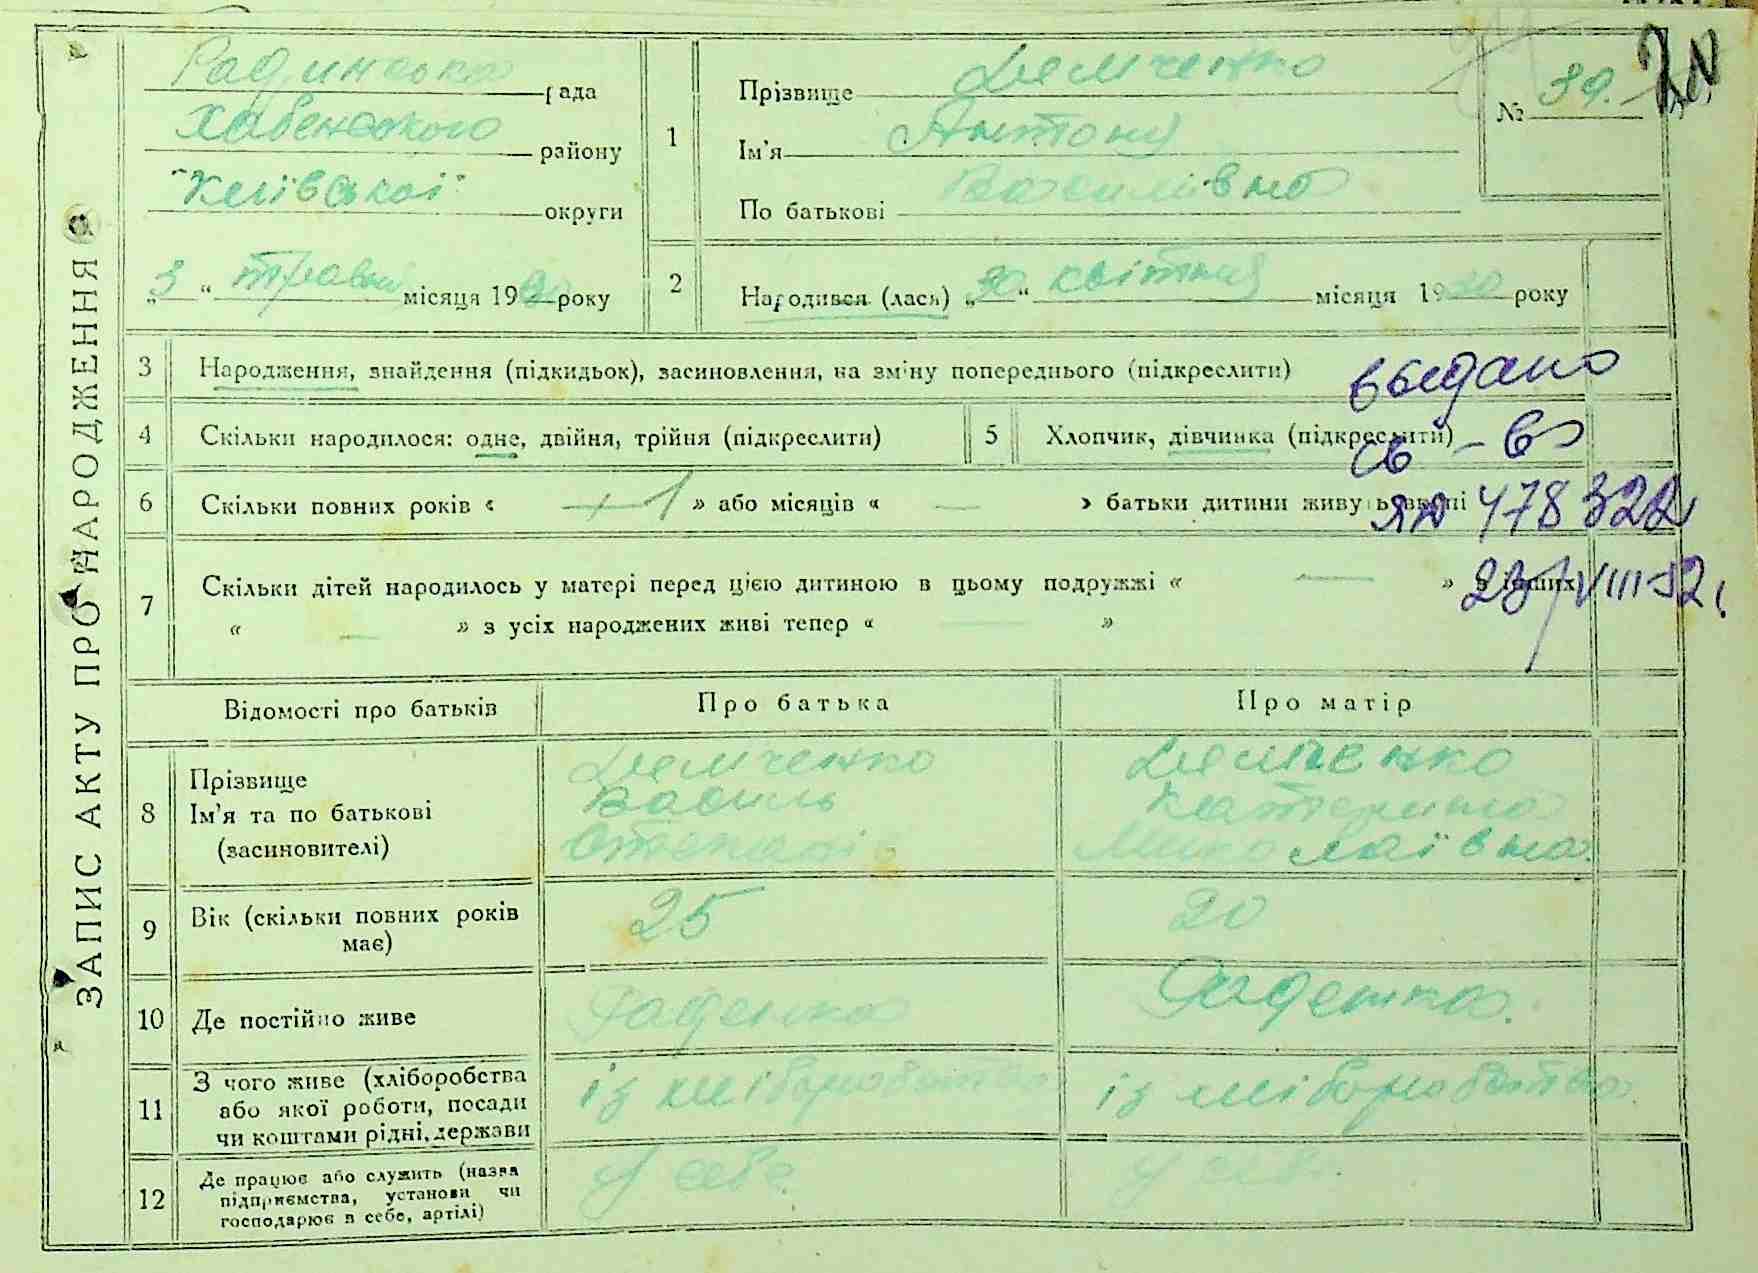 ЗАПИС АКТУ ПРО НАРОДЖЕННЯ
Радинська рада
Хабенського району
"Київської" округи
„3“ травня місяця 1930 року
1
Прізвище Демченко
Ім'я Антоня
По батькові Василівна
№ 39.
2
Народився (лася) „30“ квітня місяця 1930 року
3 Народження, знайдення (підкидьок), засиновлення, на зміну попереднього (підкреслити)
выдано
4 Скільки народилося: одне, двійня, трійня (підкреслити)
5 Хлопчик, дівчинка (підкреслити)
св-во
6 Скільки повних років « 1 » або місяців « — » батьки дитини живуть вкупі
ЯЮ 478322
7 Скільки дітей народилось у матері перед цією дитиною в цьому подружжі « — » в інших
23/VIII-52г.
« — » з усіх народжених живі тепер « — »
Відомості про батьків
Про батька
Про матір
8 Прізвище
Ім'я та по батькові
(засиновителі)
Демченко
Василь
Степанів
Демченко
Катерина
Миколаївна.
9 Вік (скільки повних років
має)
25
20
10 Де постійно живе
Раденка
Раденка.
11 З чого живе (хліборобства
або якої роботи, посади
чи коштами рідні, держави
із хліборобства
із хліборобства.
12 Де працює або служить (назва
підприємства, установи чи
господарює в себе, артілі)
У себе
У себе.